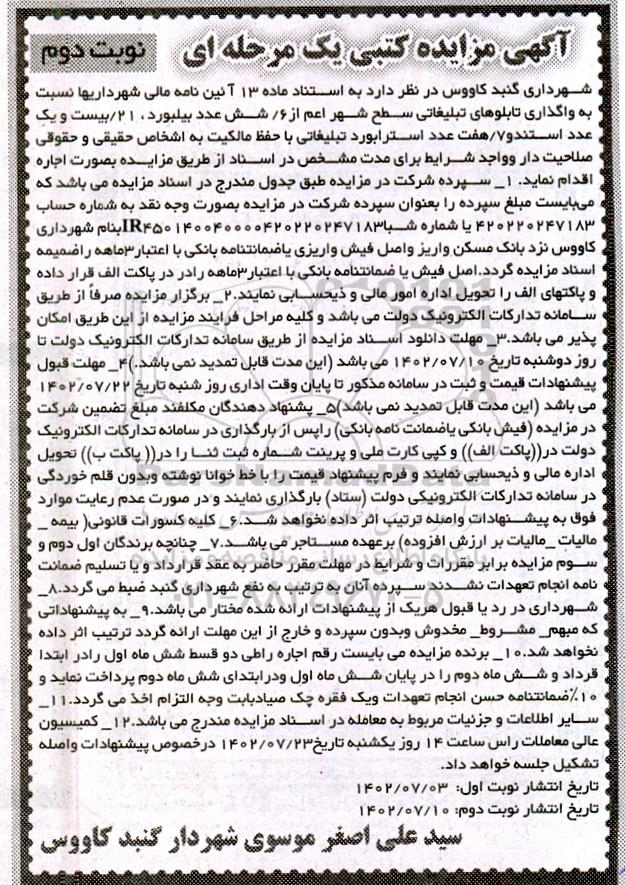 آگهی مزایده کتبی یک مرحله ای
نوبت دوم
شهرداری گنبد کاووس در نظر دارد به استناد ماده ۱۳ آئین نامه مالی شهرداریها نسبت
به واگذاری تابلوهای تبلیغاتی سطح شهر اعم از ۶/ شش عدد بیلبورد ، ۲۱/بیست و یک
عدد استندو ۷/هفت عدد استرابورد تبلیغاتی با حفظ مالکیت به اشخاص حقیقی و حقوقی
صلاحیت دار وواجد شرایط برای مدت مشخص در اسناد از طریق مزایده بصورت اجاره
اقدام نماید. ۱_ سپرده شرکت در مزایده طبق جدول مندرج در اسناد مزایده می باشد که
می‌بایست مبلغ سپرده را بعنوان سپرده شرکت در مزایده بصورت وجه نقد به شماره حساب
۴۲۰۲۲۰۲۴۷۱۸۳ یا شماره شبا IR۴۵۰۱۴۰۰۴۰۰۰۰۰۴۲۰۲۲۰۲۴۷۱۸۳بنام شهرداری
کاووس نزد بانک مسکن واریز واصل فیش واریزی یاضمانتنامه بانکی با اعتبار۳ماهه راضمیمه
اسناد مزایده گردد.اصل فیش یا ضمانتنامه بانکی با اعتبار۳ماهه رادر در پاکت الف قرار داده
و پاکتهای الف را تحویل اداره امور مالی و ذیحسابی نمایند.۲_ برگزار مزایده صرفاً از طریق
سامانه تدارکات الکترونیک دولت می باشد و کلیه مراحل فرایند مزایده از این طریق امکان
پذیر می باشد.۳_ مهلت دانلود اسناد مزایده از طریق سامانه تدارکات الکترونیک دولت تا
روز دوشنبه تاریخ ۱۴۰۲/۰۷/۱۰ می باشد (این مدت قابل تمدید نمی باشد.)۴_ مهلت قبول
پیشنهادات قیمت و ثبت در سامانه مذکور تا پایان وقت اداری روز شنبه تاریخ ۱۴۰۲/۰۷/۲۲
می باشد (این مدت قابل تمدید نمی باشد)۵_ پشنهاد دهندگان مکلفند مبلغ تضمین شرکت
در مزایده (فیش بانکی یاضمانت نامه بانکی) راپس از بارگذاری در سامانه تدارکات الکترونیک
دولت در((پاکت الف)) و کپی کارت ملی و پرینت شماره ثبت ثنا را در(( پاکت ب)) تحویل
اداره مالی و ذیحسابی نمایند و فرم پیشنهاد قیمت را با خط خوانا نوشته وبدون قلم خوردگی
در سامانه تدارکات الکترونیکی دولت (ستاد) بارگذاری نمایند و در صورت عدم رعایت موارد
فوق به پیشنهادات واصله ترتیب اثر داده نخواهد شد.۶_ کلیه کسورات قانونی( بیمه _
مالیات _مالیات بر ارزش افزوده) برعهده مستاجر می باشد.۷_ چنانچه برندگان اول دوم و
سوم مزایده برابر مقررات و شرایط در مهلت مقرر حاضر به عقد قرارداد و یا تسلیم ضمانت
نامه انجام تعهدات نشدند سپرده آنان به ترتیب به نفع شهرداری گنبد ضبط می گردد.۸_
شهرداری در رد یا قبول هریک از پیشنهادات ارائه شده مختار می باشد.۹_ به پیشنهاداتی
که مبهم_ مشروط_ مخدوش وبدون سپرده و خارج از این مهلت ارائه گردد ترتیب اثر داده
نخواهد شد.۱۰_ برنده مزایده می بایست رقم اجاره راطی دو قسط شش ماه اول رادر ابتدا
قرداد و شش ماه دوم را در پایان شش ماه اول ودرابتدای شش ماه دوم پرداخت نماید و
۱۰٪ضمانتنامه حسن انجام تعهدات ویک فقره چک صیادبابت وجه التزام اخذ می گردد.۱۱_
سایر اطلاعات و جزئیات مربوط به معامله در اسناد مزایده مندرج می باشد.۱۲_ کمیسیون
عالی معاملات راس ساعت ۱۴ روز یکشنبه تاریخ۱۴۰۲/۰۷/۲۳ درخصوص پیشنهادات واصله
تشکیل جلسه خواهد داد.
تاریخ انتشار نوبت اول: ۱۴۰۲/۰۷/۰۳
تاریخ انتشار نوبت دوم: ۱۴۰۲/۰۷/۱۰
سید علی اصغر موسوی شهردار گنبد کاووس